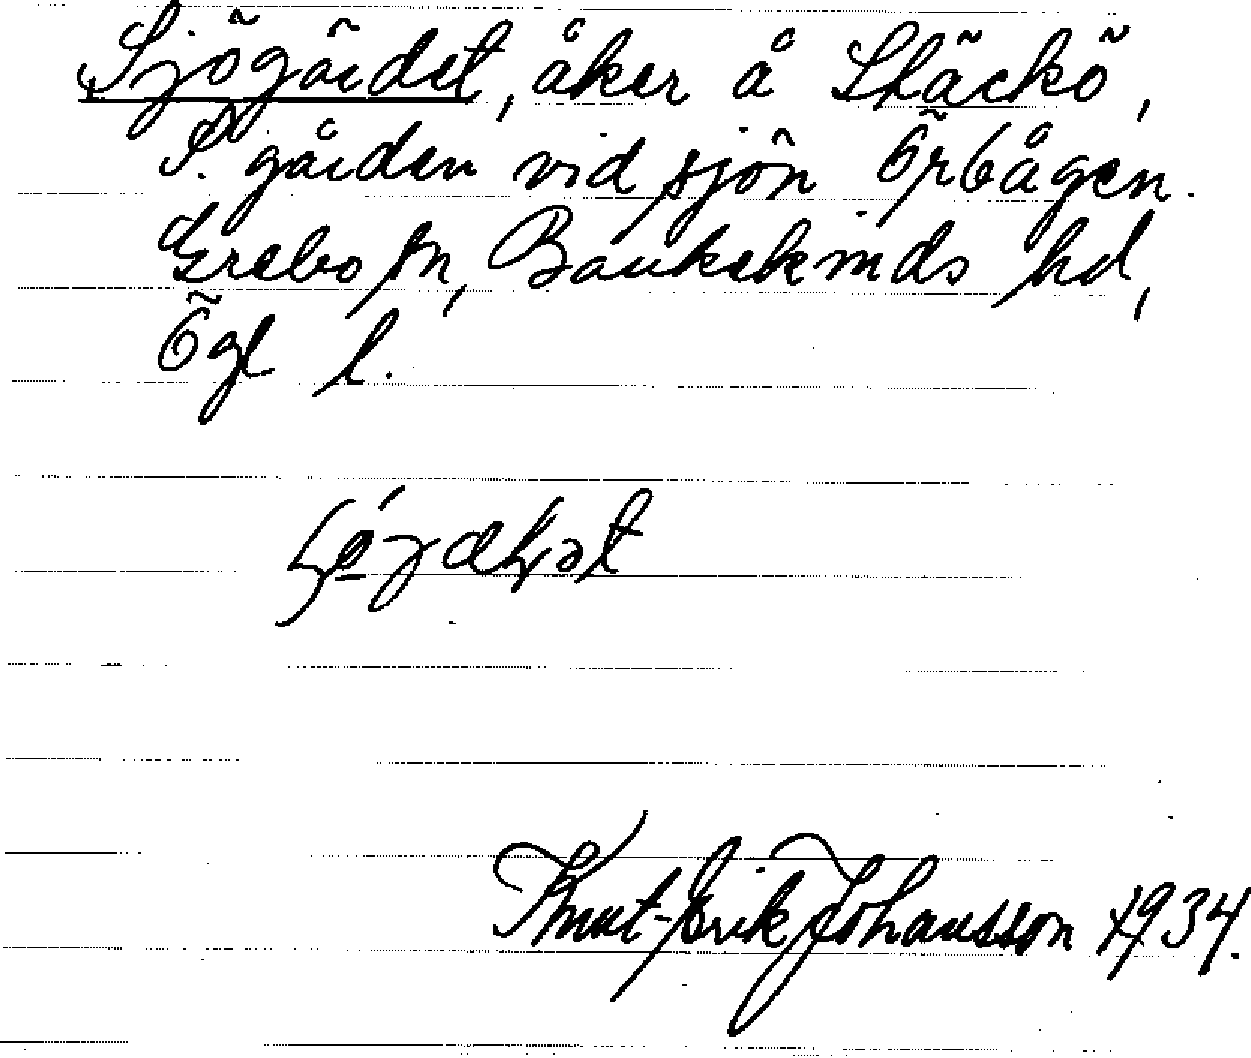 Sjögärdet, åker å Släckö,
P. gården vid sjön Örbågen.
Grebo sn, Bankekinds hd,
Ögl l.
Knut-Erik Johansson 1934.